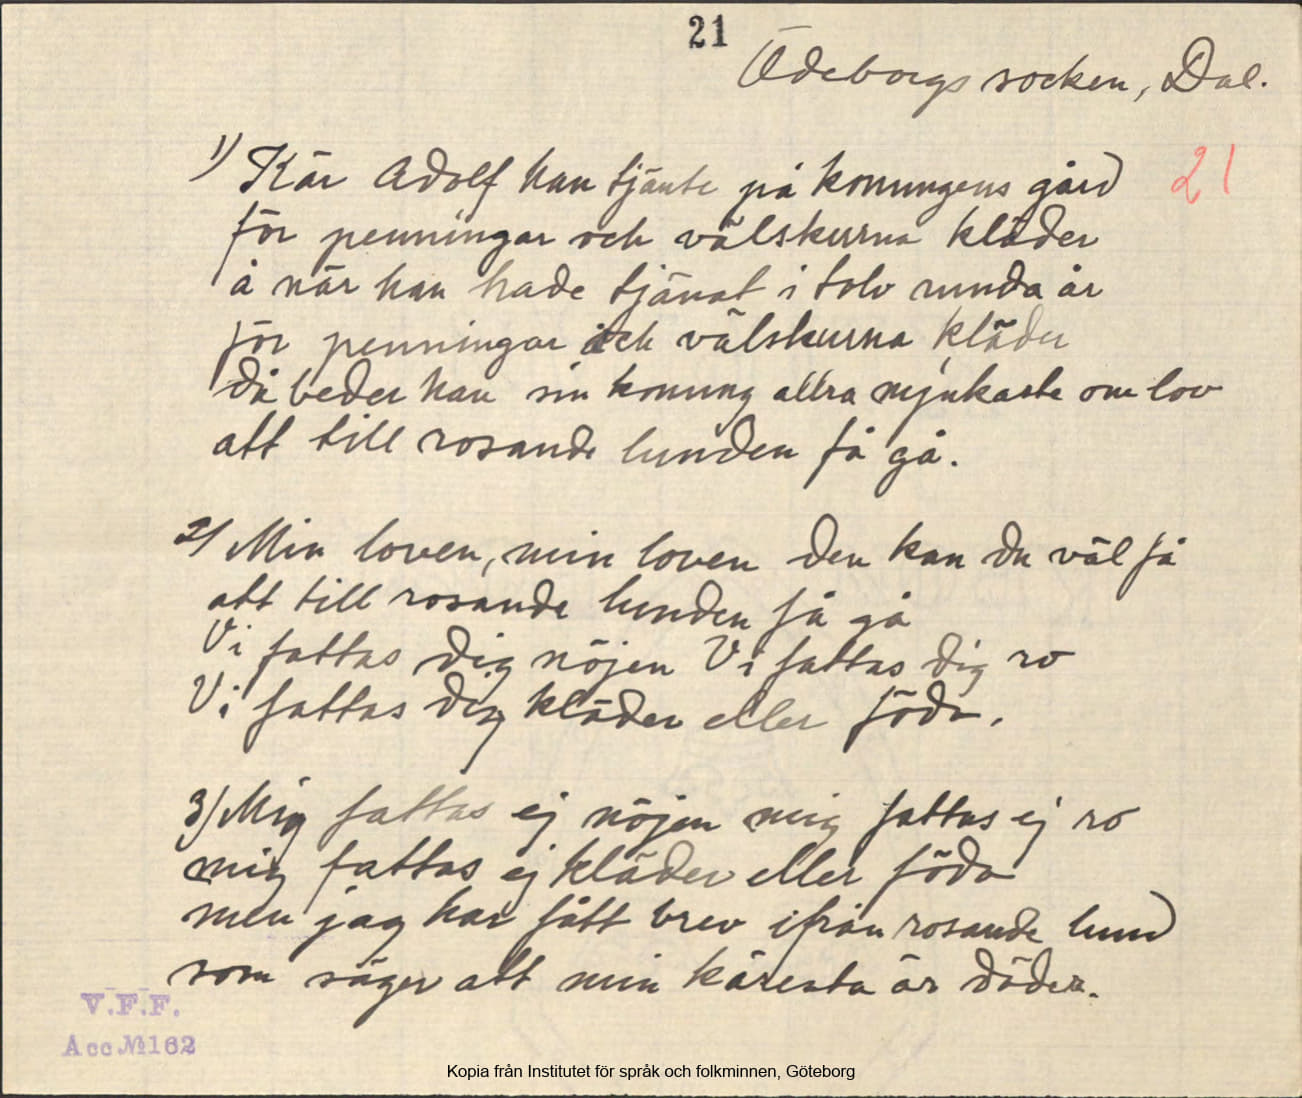 21
Ödeborgs socken, Dal.
1) Kär Adolf han tjänte på konungens gård
21
för penningar och välskurna kläder
å när han hade tjänat i tolv runda år
för penningar och välskurna kläder
då beder han sin konung allra mjukaste om lov
att till rosande lunden få gå.
2) Min loven, min loven den kan du väl få
att till rosande lunden få gå
Vi fattas dig nöjen Vi fattas dig ro
Vi fattas dig kläder eller föda.
3) Mig fattas ej nöjen mig fattas ej ro
mig fattas ej kläder eller föda
men jag har fått brev ifrån rosande lund
som säger att min käresta är döder.
V.F.F.
Acc № 162
Kopia från Institutet för språk och folkminnen, Göteborg